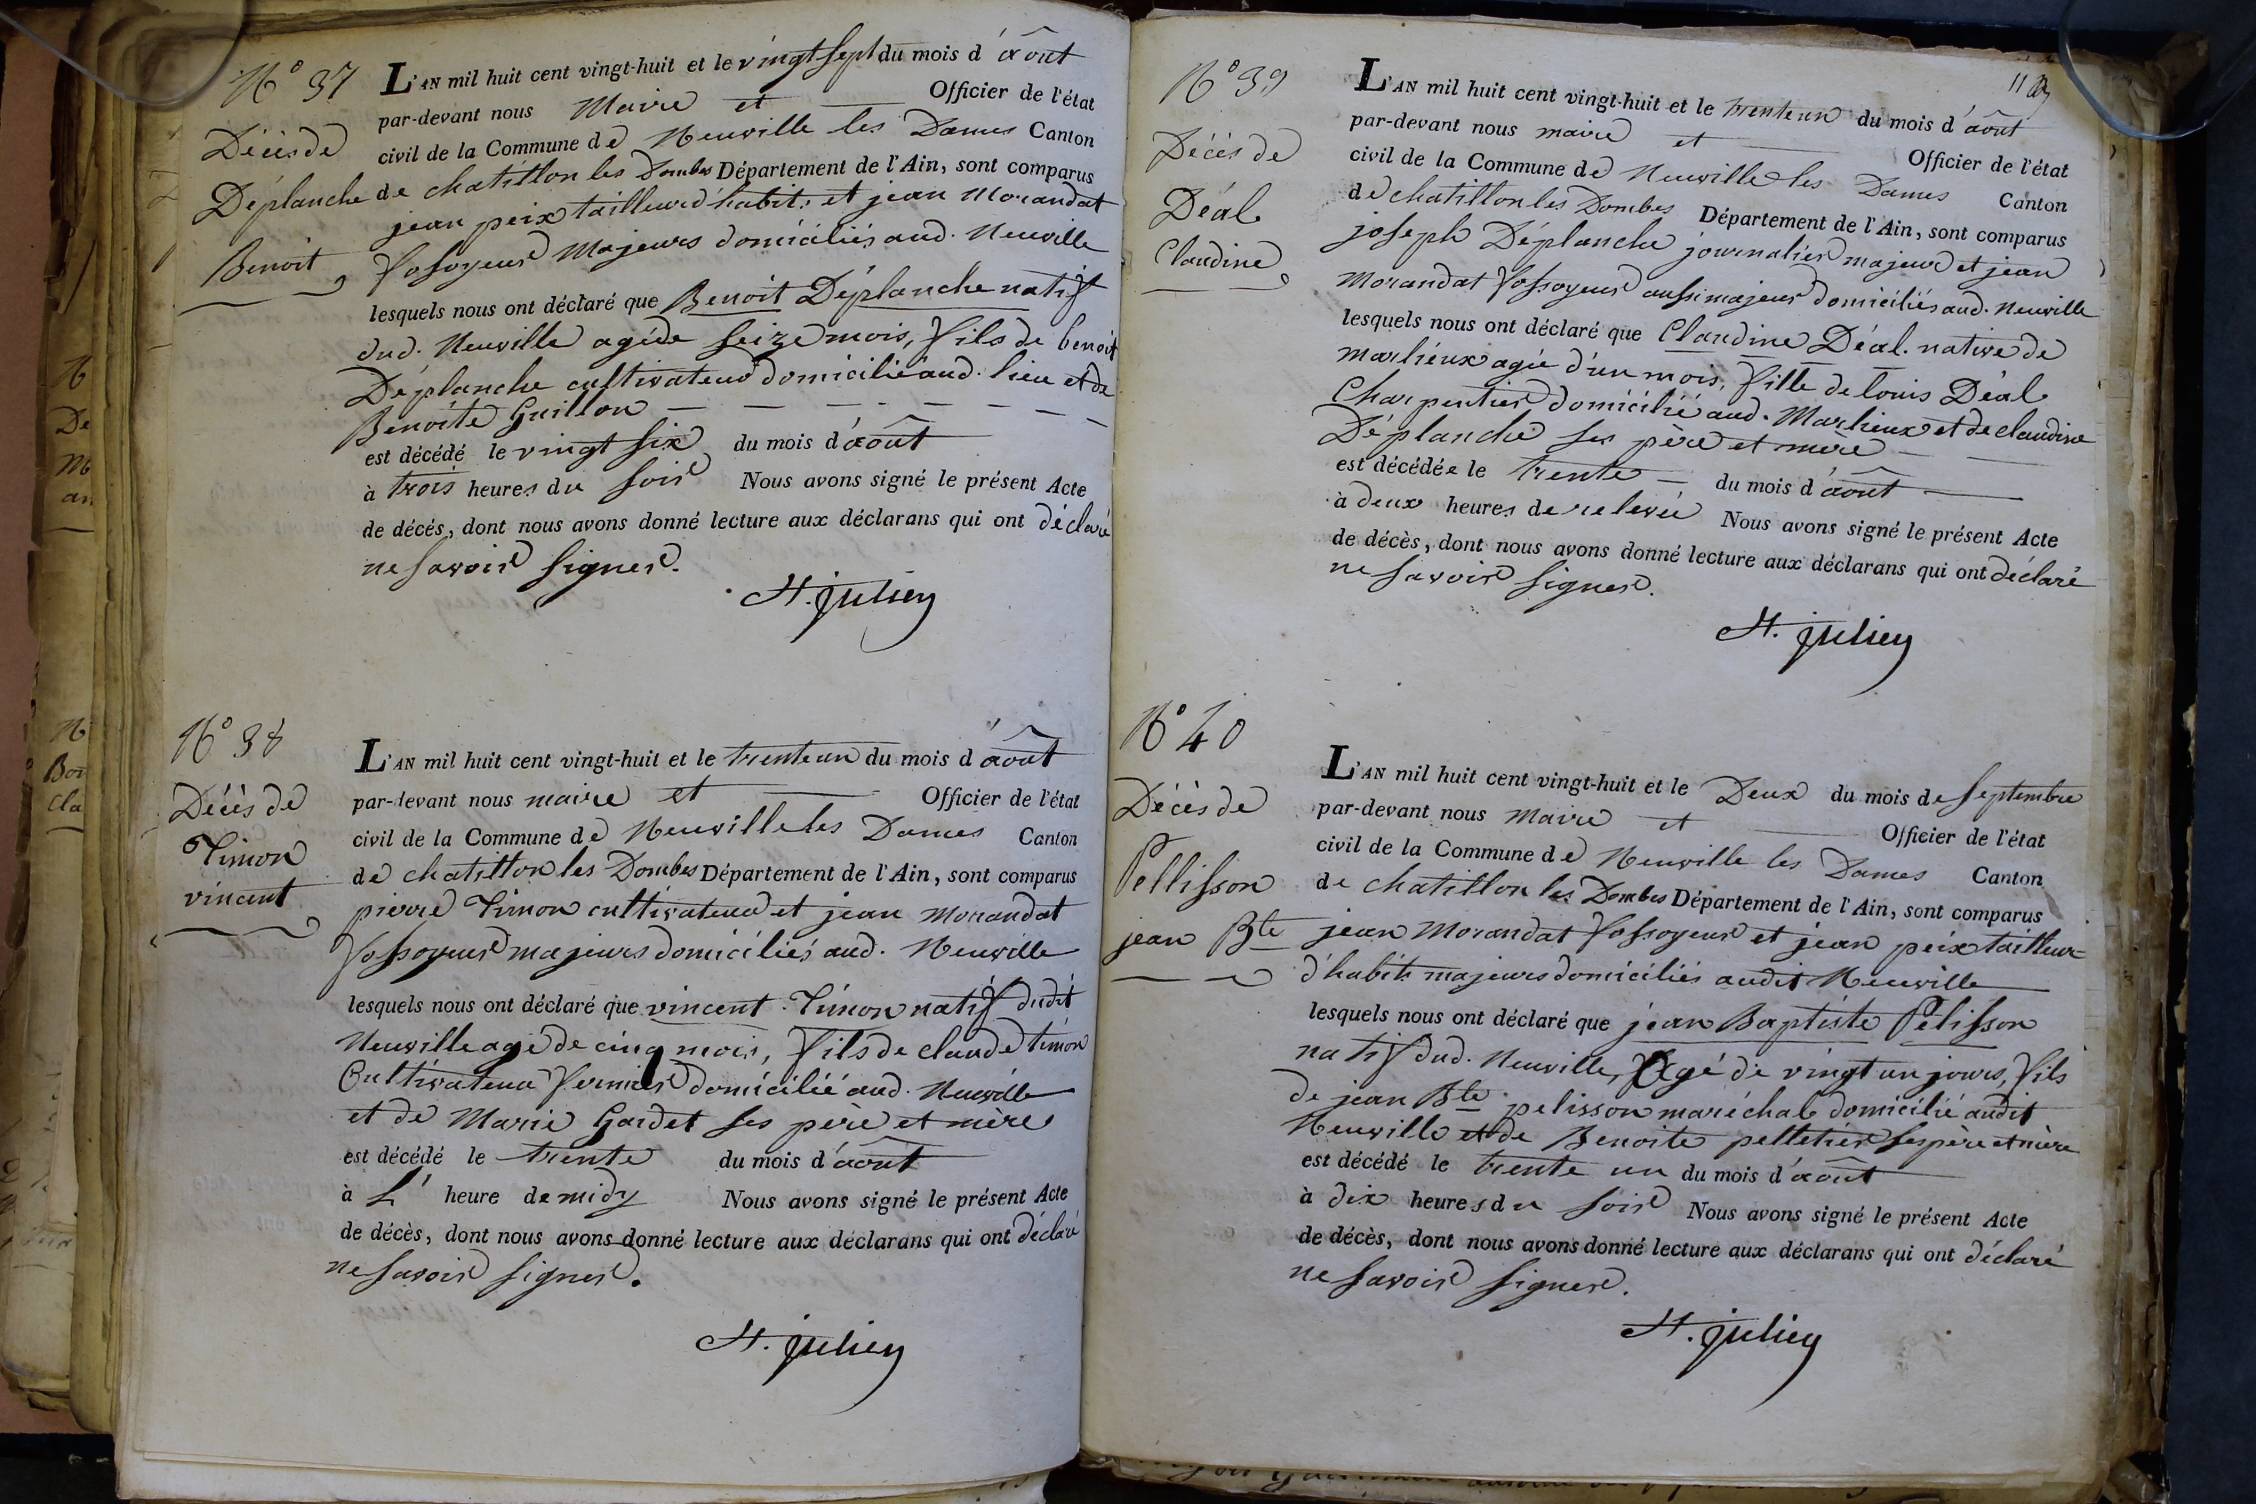 N.° 37
Décès de
Déplanche
Benoit
L'AN mil huit cent vingt-huit et le vingt sept du mois d'août
par-devant nous Maire et Officier de l'état
civil de la Commune de Neuville les Dames Canton
de chatillon les Dombes Département de l'Ain, sont comparus
jean peix tailleur d'habits et jean Morandat
fossoyeur Majeurs domiciliés aud. Neuville
lesquels nous ont déclaré que Benoit Déplanche natif
dud. Neuville agé de seize mois, fils de benoit
Déplanche cultivateur domicilié aud. lieu et de
Benoite Guillon
est décédé le vingt six du mois d'août
à trois heures du soir Nous avons signé le présent Acte
de décés, dont nous avons donné lecture aux déclarans qui ont déclaré
ne savoir signer.
St. julien
N.° 38
Décès de
Timon
vincent
L'AN mil huit cent vingt-huit et le trente un du mois d'août
par-devant nous maire et Officier de l'état
civil de la Commune de Neuville les Dames Canton
de chatillon les Dombes Département de l'Ain, sont comparus
pierre Timon cultivateur et jean Morandat
fossoyeur majeurs domiciliés aud. Neuville
lesquels nous ont déclaré que vincent Timon natif dudit
Neuville agé de cinq mois, fils de claude timon
Cultivateur fermier domicilié aud. Neuville
et de Marie Gardet ses père et mère
est décédé le trente du mois d'août
à L' heure de midy Nous avons signé le présent Acte
de décès, dont nous avons donné lecture aux déclarans qui ont déclaré
ne savoir signer.
St. julien
113
N.° 39
Décès de
Déal
Claudine
L'AN mil huit cent vingt-huit et le trente un du mois d'août
par-devant nous maire et Officier de l'état
civil de la Commune de Neuville les Dames Canton
de chatillon les Dombes Département de l'Ain, sont comparus
joseph Déplanche journalier majeur et jean
Morandat fossoyeur aussi majeur domiciliés aud. Neuville
lesquels nous ont déclaré que Claudine Déal. native de
marlieux agée d'un mois, fille de louis Déal
Charpentier domicilié aud. Marlieux et de claudine
Déplanche ses père et mère
est décédée le trente du mois d'août
à deux heures de relevée Nous avons signé le présent Acte
de décès, dont nous avons donné lecture aux déclarans qui ont déclaré
ne savoir signer.
St. julien
N.° 40
Décès de
Pellisson
jean Bte
L'AN mil huit cent vingt-huit et le Deux du mois de septembre
par-devant nous Maire et Officier de l'état
civil de la Commune de Neuville les Dames Canton
de chatillon les Dombes Département de l'Ain, sont comparus
jean Morandat fossoyeur et jean peix tailleur
d'habits majeurs domiciliés audit Neuville
lesquels nous ont déclaré que jean Baptiste Pélisson
natif dud. Neuville, Agé de vingt un jours, fils
de jean Bte pelisson maréchal domicilié audit
Neuville et de Benoite pelletier ses père et mère
est décédé le trente un du mois d'août
à dix heures du soir Nous avons signé le présent Acte
de décès, dont nous avons donné lecture aux déclarans qui ont déclaré
ne savoir signer.
St. julien